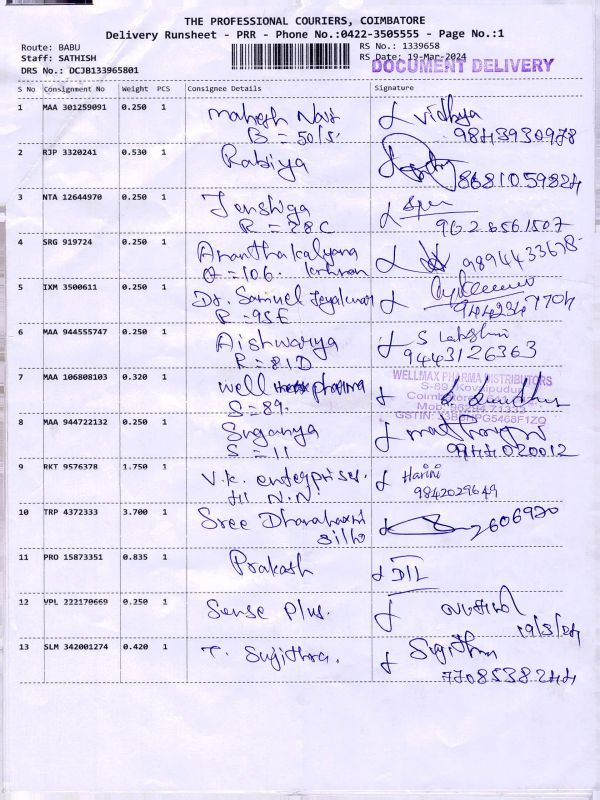 THE PROFESSIONAL COURIERS, COIMBATORE
Delivery Runsheet - PRR - Phone No.:0422-3505555 - Page No.:1
Route: BABU
Staff: SATHISH
DRS No.: DCJB133965801
RS No.: 1339658
RS Date: 19-Mar-2024
DOCUMENT DELIVERY
S No Consignment No Weight PCS Consignee Details Signature
1 MAA 301259091 0.250 1 mahesh Nair Vidhya
B = 50/5 9843930978
2 RJP 3320241 0.530 1 Rabiya
8681059824
3 NTA 12644970 0.250 1 Jenshiga
R = 28C 9626561507
4 SRG 919724 0.250 1 Anantha kalyana 9894433678
Q = 106.
5 IXM 3500611 0.250 1 Dr. Samuel Jeyakumar
R = 95E 9442347704
6 MAA 944555747 0.250 1 Aishwarya S Lakshmi
R = 81D 9443126363
7 MAA 106808103 0.320 1 well pharma
S = 89.
WELLMAX PHARMA DISTRIBUTORS
S-89, Kovaipudur
Coimbatore
8 MAA 944722132 0.250 1 Suganya
S = 11 9944020012
9 RKT 9576378 1.750 1 V.K. enterprises. Harini
N.N. 9842029649
10 TRP 4372333 3.700 1 Sree 2606920
silks
11 PRO 15873351 0.835 1 Prakash DIL
12 VPL 222170669 0.250 1 Sense Plus.
19/3/24
13 SLM 342001274 0.420 1 T. Sujithra. Sujithra
7708538244